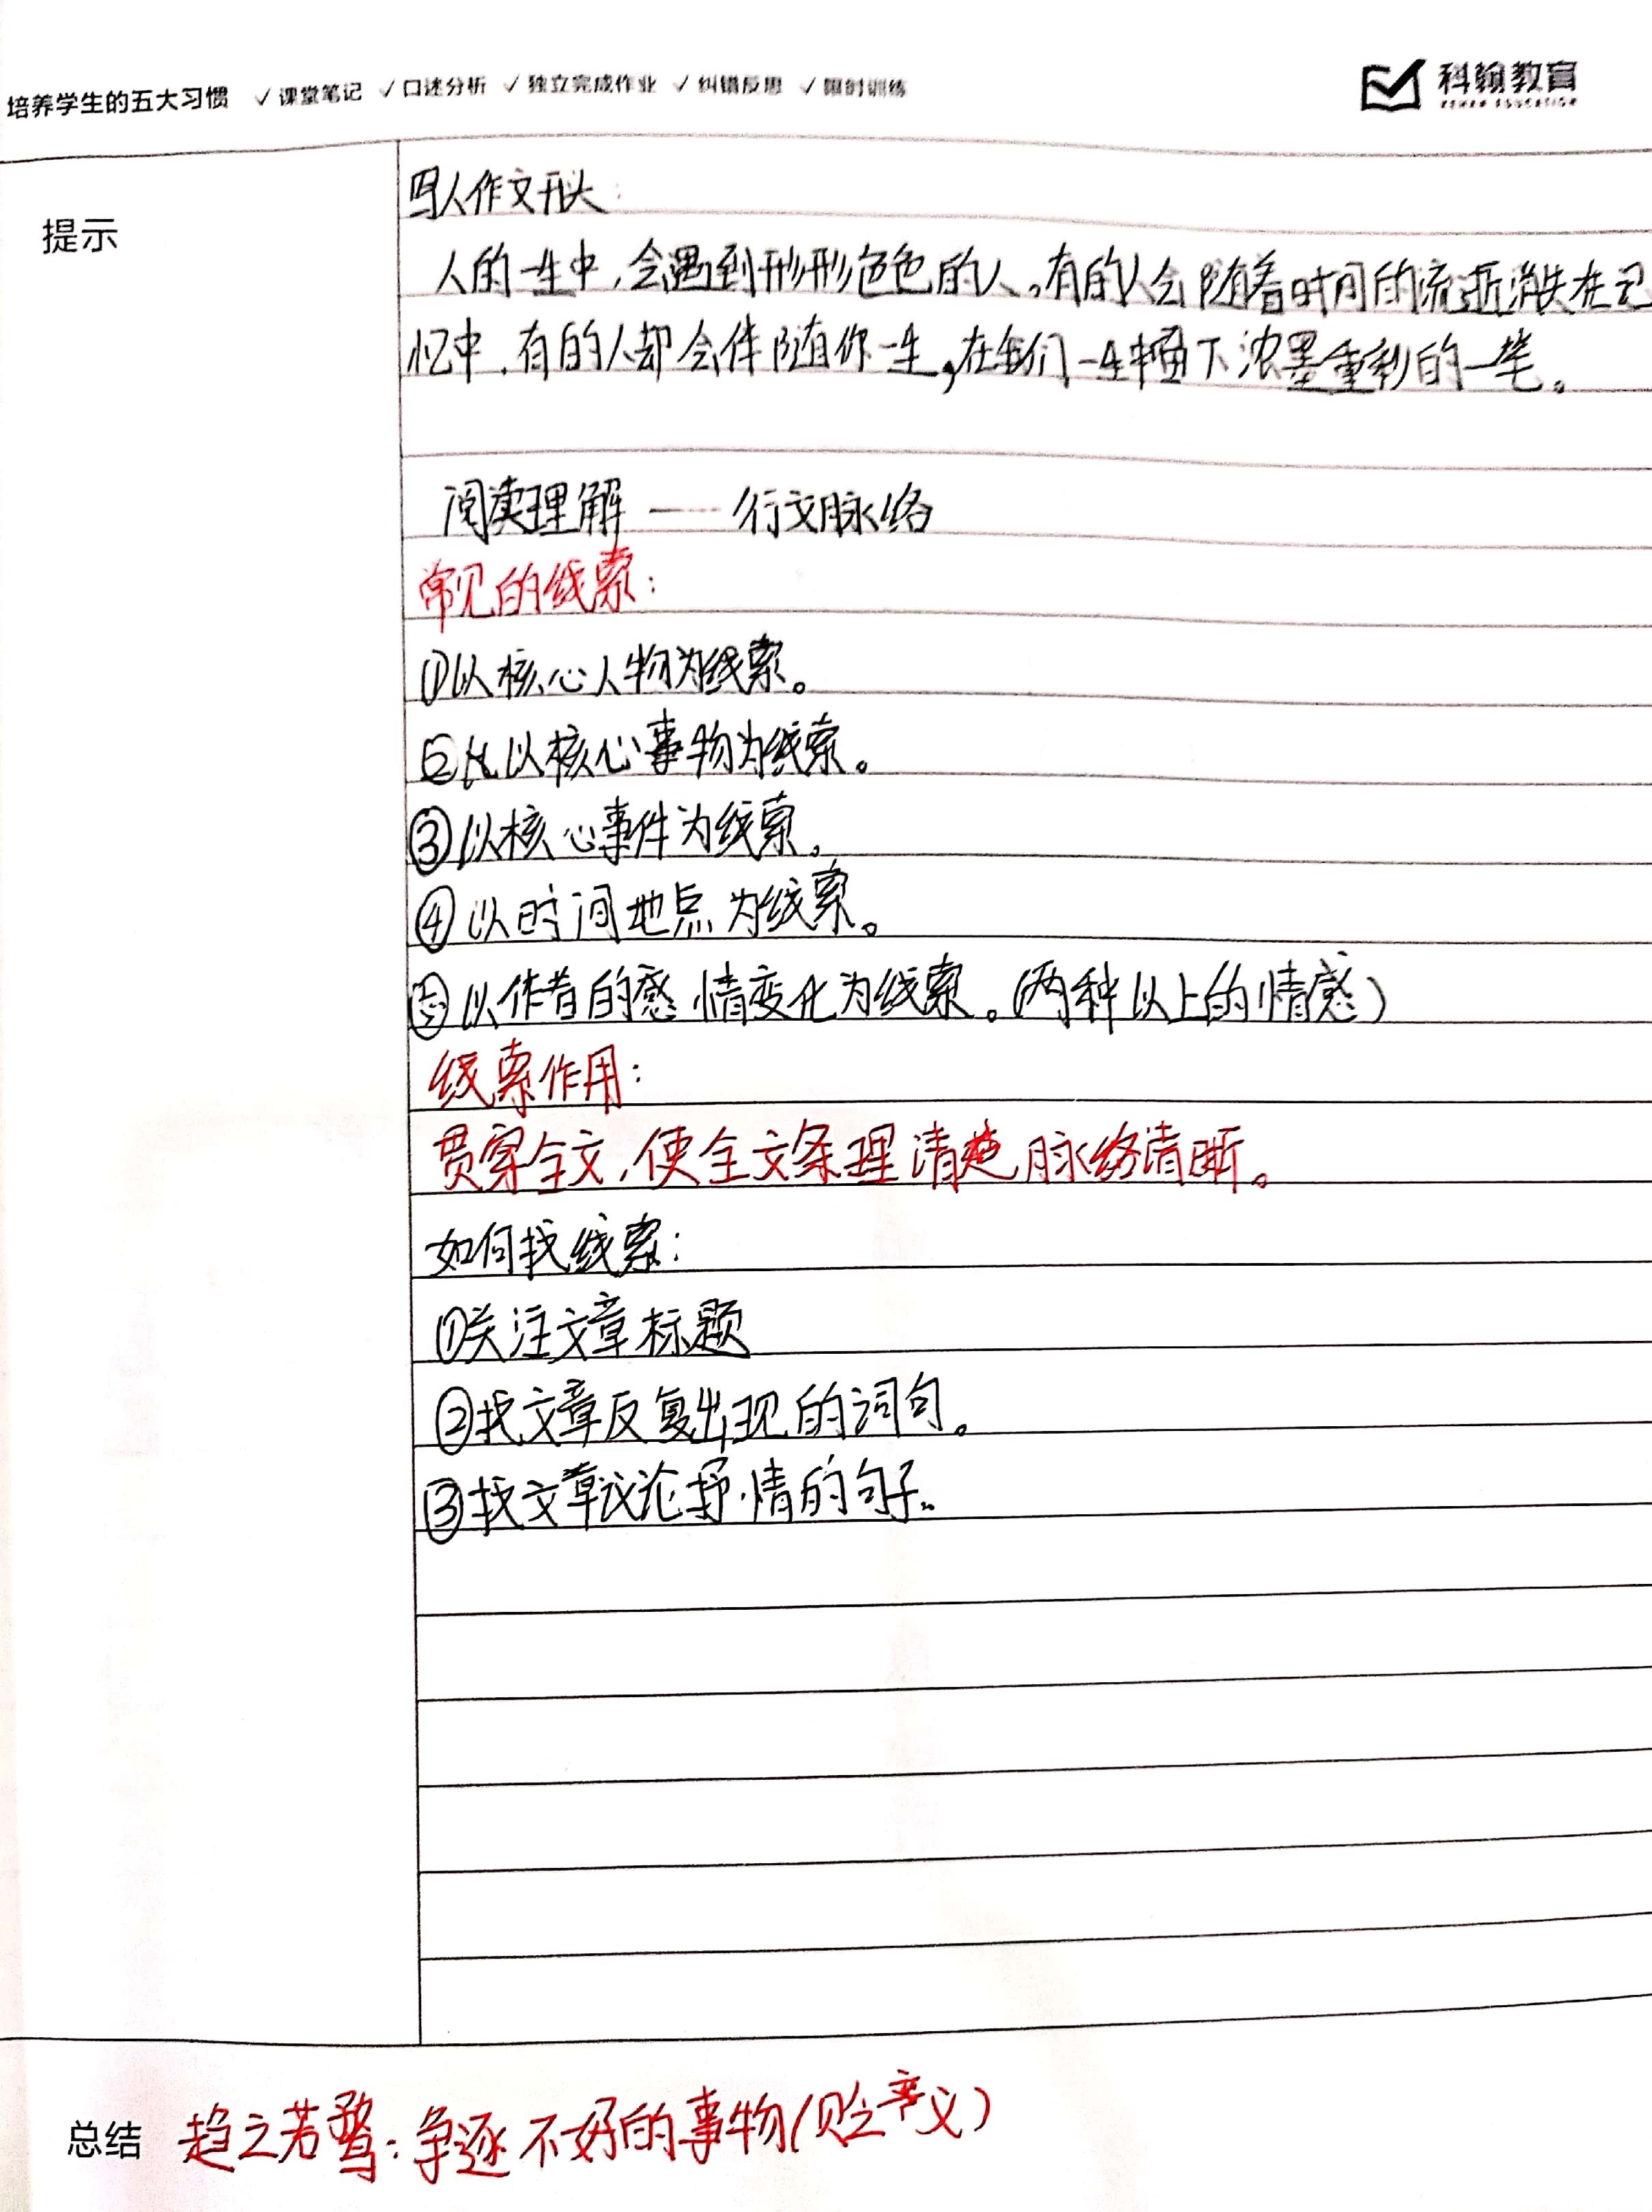 培养学生的五大习惯 ✓课堂笔记 ✓口述分析 ✓独立完成作业 ✓纠错反思 ✓限时训练
科翰教育
KEHAN EDUCATION
提示
写人作文开头:
人的一生中,会遇到形形色色的人。有的人会随着时间的流逝消失在记
忆中,有的人却会伴随你一生,在我们一生中画下浓墨重彩的一笔。
阅读理解——行文脉络
常见的线索:
①以核心人物为线索。
②以核心事物为线索。
③以核心事件为线索。
④以时间地点为线索。
⑤以作者的感情变化为线索。(两种以上的情感)
线索作用:
贯穿全文,使全文条理清楚脉络清晰。
如何找线索:
①关注文章标题
②找文章反复出现的词句。
③找文章议论抒情的句子。
总结 趋之若鹜:争逐不好的事物(贬义)